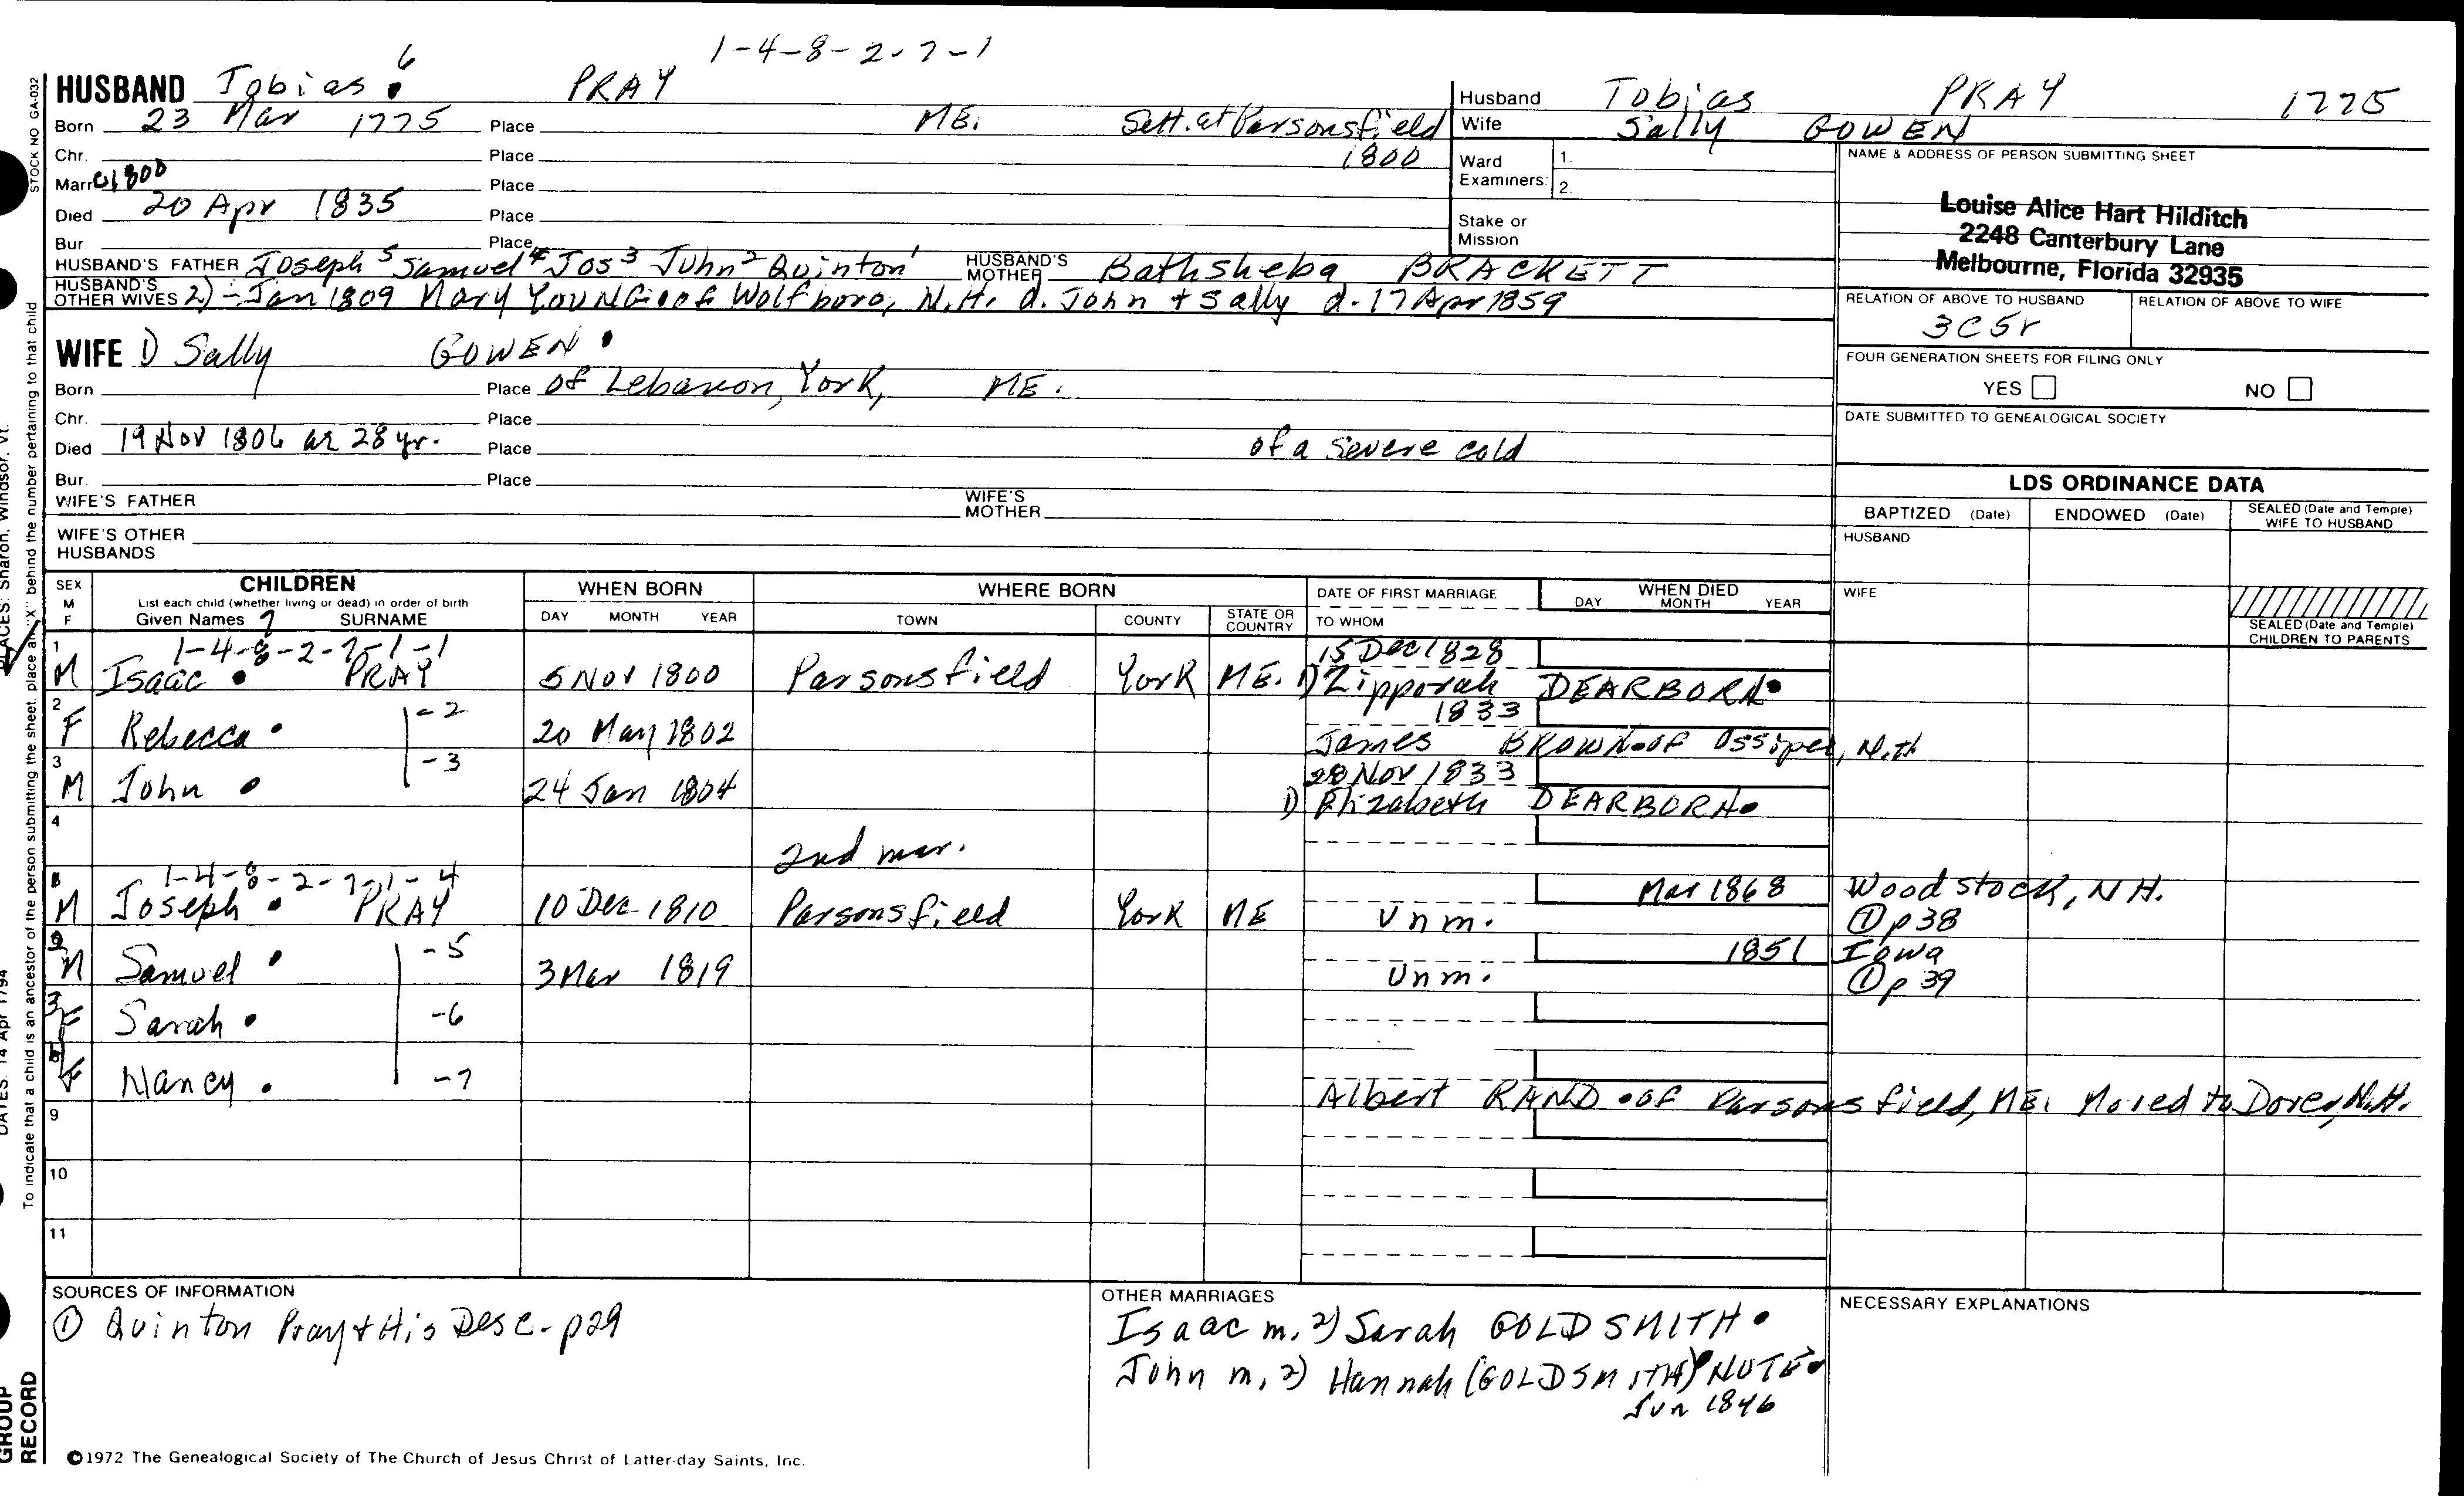 1-4-8-2-7-1
HUSBAND Tobias 6 PRAY
Born 23 Mar 1775 Place ME. Sett. at Parsonsfield
Chr. Place 1800
Marr c1800 Place
Died 20 Apr 1835 Place
Bur. Place
HUSBAND'S FATHER Joseph 5 Samuel 4 Jos 3 John 2 Quinton 1 HUSBAND'S MOTHER Bathsheba BRACKETT
HUSBAND'S OTHER WIVES 2) - Jan 1809 Mary YOUNG of Wolfboro, N.H. d. John + Sally d. 17 Apr 1859
Husband Tobias PRAY 1775
Wife Sally GOWEN
Ward Examiners: 1. 2.
Stake or Mission
NAME & ADDRESS OF PERSON SUBMITTING SHEET
Louise Alice Hart Hilditch
2248 Canterbury Lane
Melbourne, Florida 32935
RELATION OF ABOVE TO HUSBAND RELATION OF ABOVE TO WIFE
3C5r
FOUR GENERATION SHEETS FOR FILING ONLY
YES NO
DATE SUBMITTED TO GENEALOGICAL SOCIETY
WIFE 1) Sally GOWEN
Born Place of Lebanon, York, ME.
Chr. Place
Died 19 Nov 1806 ae 28 yr. Place of a severe cold
Bur. Place
WIFE'S FATHER WIFE'S MOTHER
WIFE'S OTHER HUSBANDS
LDS ORDINANCE DATA
BAPTIZED (Date) ENDOWED (Date) SEALED (Date and Temple) WIFE TO HUSBAND
HUSBAND
WIFE
SEALED (Date and Temple) CHILDREN TO PARENTS
SEX M F
CHILDREN
List each child (whether living or dead) in order of birth
Given Names 7 SURNAME
WHEN BORN
DAY MONTH YEAR
WHERE BORN
TOWN COUNTY STATE OR COUNTRY
DATE OF FIRST MARRIAGE
TO WHOM
WHEN DIED
DAY MONTH YEAR
1 1-4-8-2-7-1-1 15 Dec 1828
M Isaac PRAY 5 Nov 1800 Parsonsfield York ME. 1) Zipporah DEARBORN
2 -2 1833
F Rebecca 20 May 1802 James BROWN of Ossipee, N.H
3 -3 28 Nov 1833
M John 24 Jan 1804 1) Elizabeth DEARBORN
4
2nd mar.
1-4-8-2-7-1-4 Mar 1868 Woodstock, N H.
M Joseph PRAY 10 Dec 1810 Parsonsfield York ME Unm. ① p 38
-5 1851 Iowa
M Samuel 3 Mar 1819 Unm. ① p 39
3 F Sarah -6
F Nancy -7
Albert RAND of Parsonsfield, ME. Moved to Dover, N.H.
9
10
11
SOURCES OF INFORMATION
① Quinton Pray + His Desc. p29
OTHER MARRIAGES
Isaac m. 2) Sarah GOLDSMITH
John m. 2) Hannah (GOLDSMITH) NUTE
Jun 1846
NECESSARY EXPLANATIONS
©1972 The Genealogical Society of The Church of Jesus Christ of Latter-day Saints, Inc.
STOCK NO GA-032
To indicate that a child is an ancestor of the person submitting the sheet, place an "X" behind the number pertaining to that child
PLACES: Sharon, Windsor, Vt.
DATES: 14 Apr 1794
GROUP
RECORD